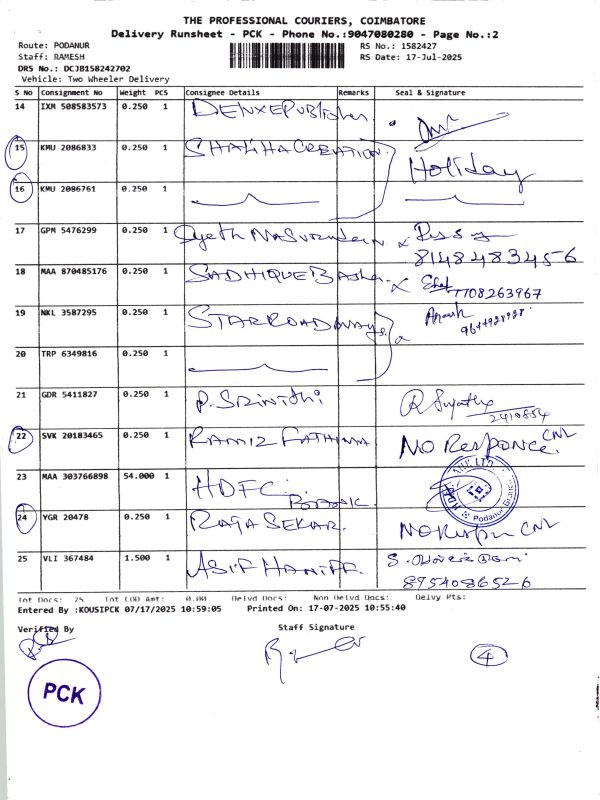 THE PROFESSIONAL COURIERS, COIMBATORE
Delivery Runsheet - PCK - Phone No.:9047080280 - Page No.:2
Route: PODANUR
Staff: RAMESH
DRS No.: DCJB158242702
Vehicle: Two Wheeler Delivery
RS No.: 1582427
RS Date: 17-Jul-2025
S No Consignment No Weight PCS Consignee Details Remarks Seal & Signature
14 IXM 508583573 0.250 1
15 KMU 2086833 0.250 1 SHALIHA CREATION Holiday
16 KMU 2086761 0.250 1
17 GPM 5476299 0.250 1
8148483456
18 MAA 870485176 0.250 1 SADHIQUE BASHA
7708263967
19 NKL 3587295 0.250 1 STAR ROADWAYS
20 TRP 6349816 0.250 1
21 GDR 5411827 0.250 1 P. SRINITHI
2410854
22 SVK 20183465 0.250 1 RAMIZ FATHIMA NO Responce CNL
23 MAA 303766898 54.000 1 HDFC
Podanur Branch
24 YGR 20478 0.250 1 RAJA SEKAR CNL
25 VLI 367484 1.500 1 ASIF HANIFF
8754086526
Tot Docs: 25 Tot COD Amt: 0.00 Delvd Docs: Non Delvd Docs: Delvy Pts:
Entered By :KOUSIPCK 07/17/2025 10:59:05 Printed On: 17-07-2025 10:55:40
Verified By Staff Signature
4
PCK